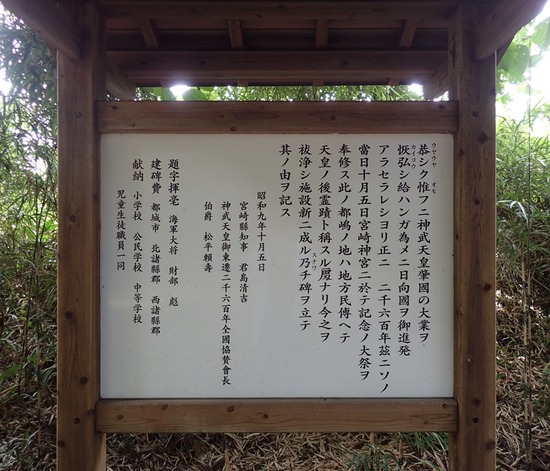 恭シク惟フニ神武天皇肇國の大業ヲ
恢弘シ給ハンガ為メニ日向國ヲ御進発
アラセラレシヨリ正ニ 二千六百年茲ニソノ
當日十月五日宮崎神宮ニ於テ記念ノ大祭ヲ
奉修ス此ノ都嶋ノ地ハ地方民傳ヘテ
天皇ノ後霊蹟ト稱スル處ナリ今之ヲ
祓浄シ施設新ニ成ル乃チ碑ヲ立テ
其ノ由ヲ記ス
昭和九年十月五日
宮崎縣知事 君島清吉
神武天皇御東遷二千六百年全國協賛會長
伯爵 松平頼壽
題字揮毫 海軍大将 財部 彪
建碑費 都城市 北諸縣郡 西諸縣郡
献納 小学校 公民学校 中等学校
児童生徒職員一同
ウヤウヤ
オモ
カイコウ
スナワ